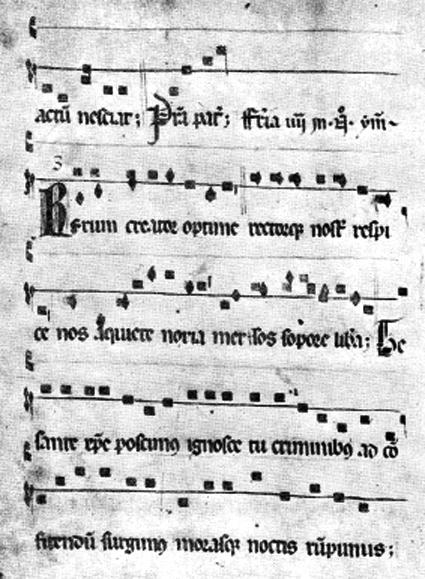 actū nesciat; Pr̄a pat̄; ff̄ria iiij
3
Rerum creator optime rectorqꝫ nost̄ respi
ce nos aquiete noxia mersos sopore lib̄a; Te
sancte xp̄e poscimꝰ ignosce tu criminibꝫ ad cō
fitendū surgimꝰ morasqꝫ noctis rūpimus;